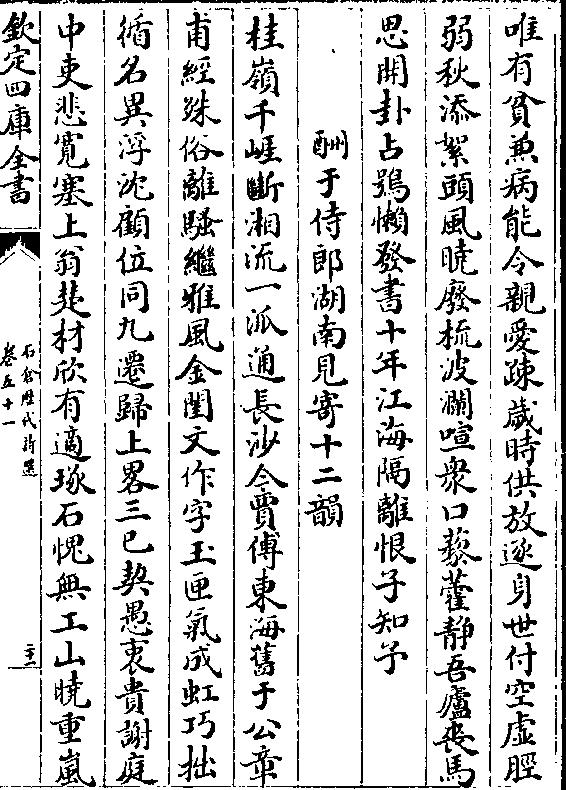 唯有貧兼病能令親愛疎歲時供放逐身世付空虛脛
弱秋添絮頭風曉廢梳波瀾喧衆口藜藿静吾廬喪馬
思開卦占鴞懶發書十年江海隔離恨子知予
酬于侍郎湖南見寄十二韻
桂嶺千崖斷湘流一派通長沙今賈傅東海舊于公章
甫經殊俗離騷繼雅風金閨文作字玉匣氣成虹巧拙
循名異浮沈顧位同九遷歸上畧三已契愚衷貴謝庭
中吏悲寛塞上翁楚材欣有適琢石愧無工山曉重嵐
欽定四庫全書
石倉歴代詩選
卷五十一